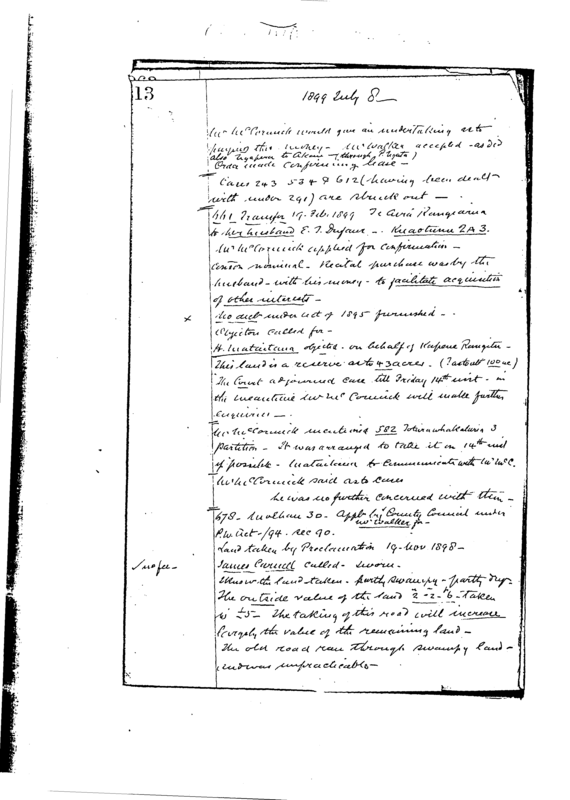 13
1899 July 8
Mr McCormick would give an undertaking as to
paying this money - Mr Walker accepted - as did
also to (through)
Order made confirming lease -
Cases 243 534 & 612 (having been dealt
with under 291) are struck out -
661 Transfer 19. Feb. 1899
to her husband E. J. Dufaur - Kuaotunu 2A3.
Mr McCormick applied for confirmation -
nominal - Recital purchase was by the
husband - with his money - to facilitate acquisition
of other interests -
x No under act of 1895 furnished -
Objectors called for -
H. Mataitaua objected - on behalf of
This land is a reserve as to 43 acres.
The Court adjourned case till Friday 14th inst - in
the meantime Mr McCormick will make further
enquiries -
Mr McCormick mentioned 582 3
Partition - It was arranged to take it on 14th inst
if possible - Mataitaua to communicate with Mr McC.
Mr McCormick said as to cases
he was no further concerned with them -
678 - 30 - Appln by County Council under
Mr Walker for -
P.W. Act - /94 - Sec 90.
Land taken by Proclamation 19 - Nov 1898 -
no fee - James called - sworn -
Know the land taken - partly swampy - partly dry -
The outside value of the land 2 - 2 - 6 - taken
is £5 - The taking of this road will increase
largely the value of the remaining land -
The old road ran through swampy land -
and was impracticable -